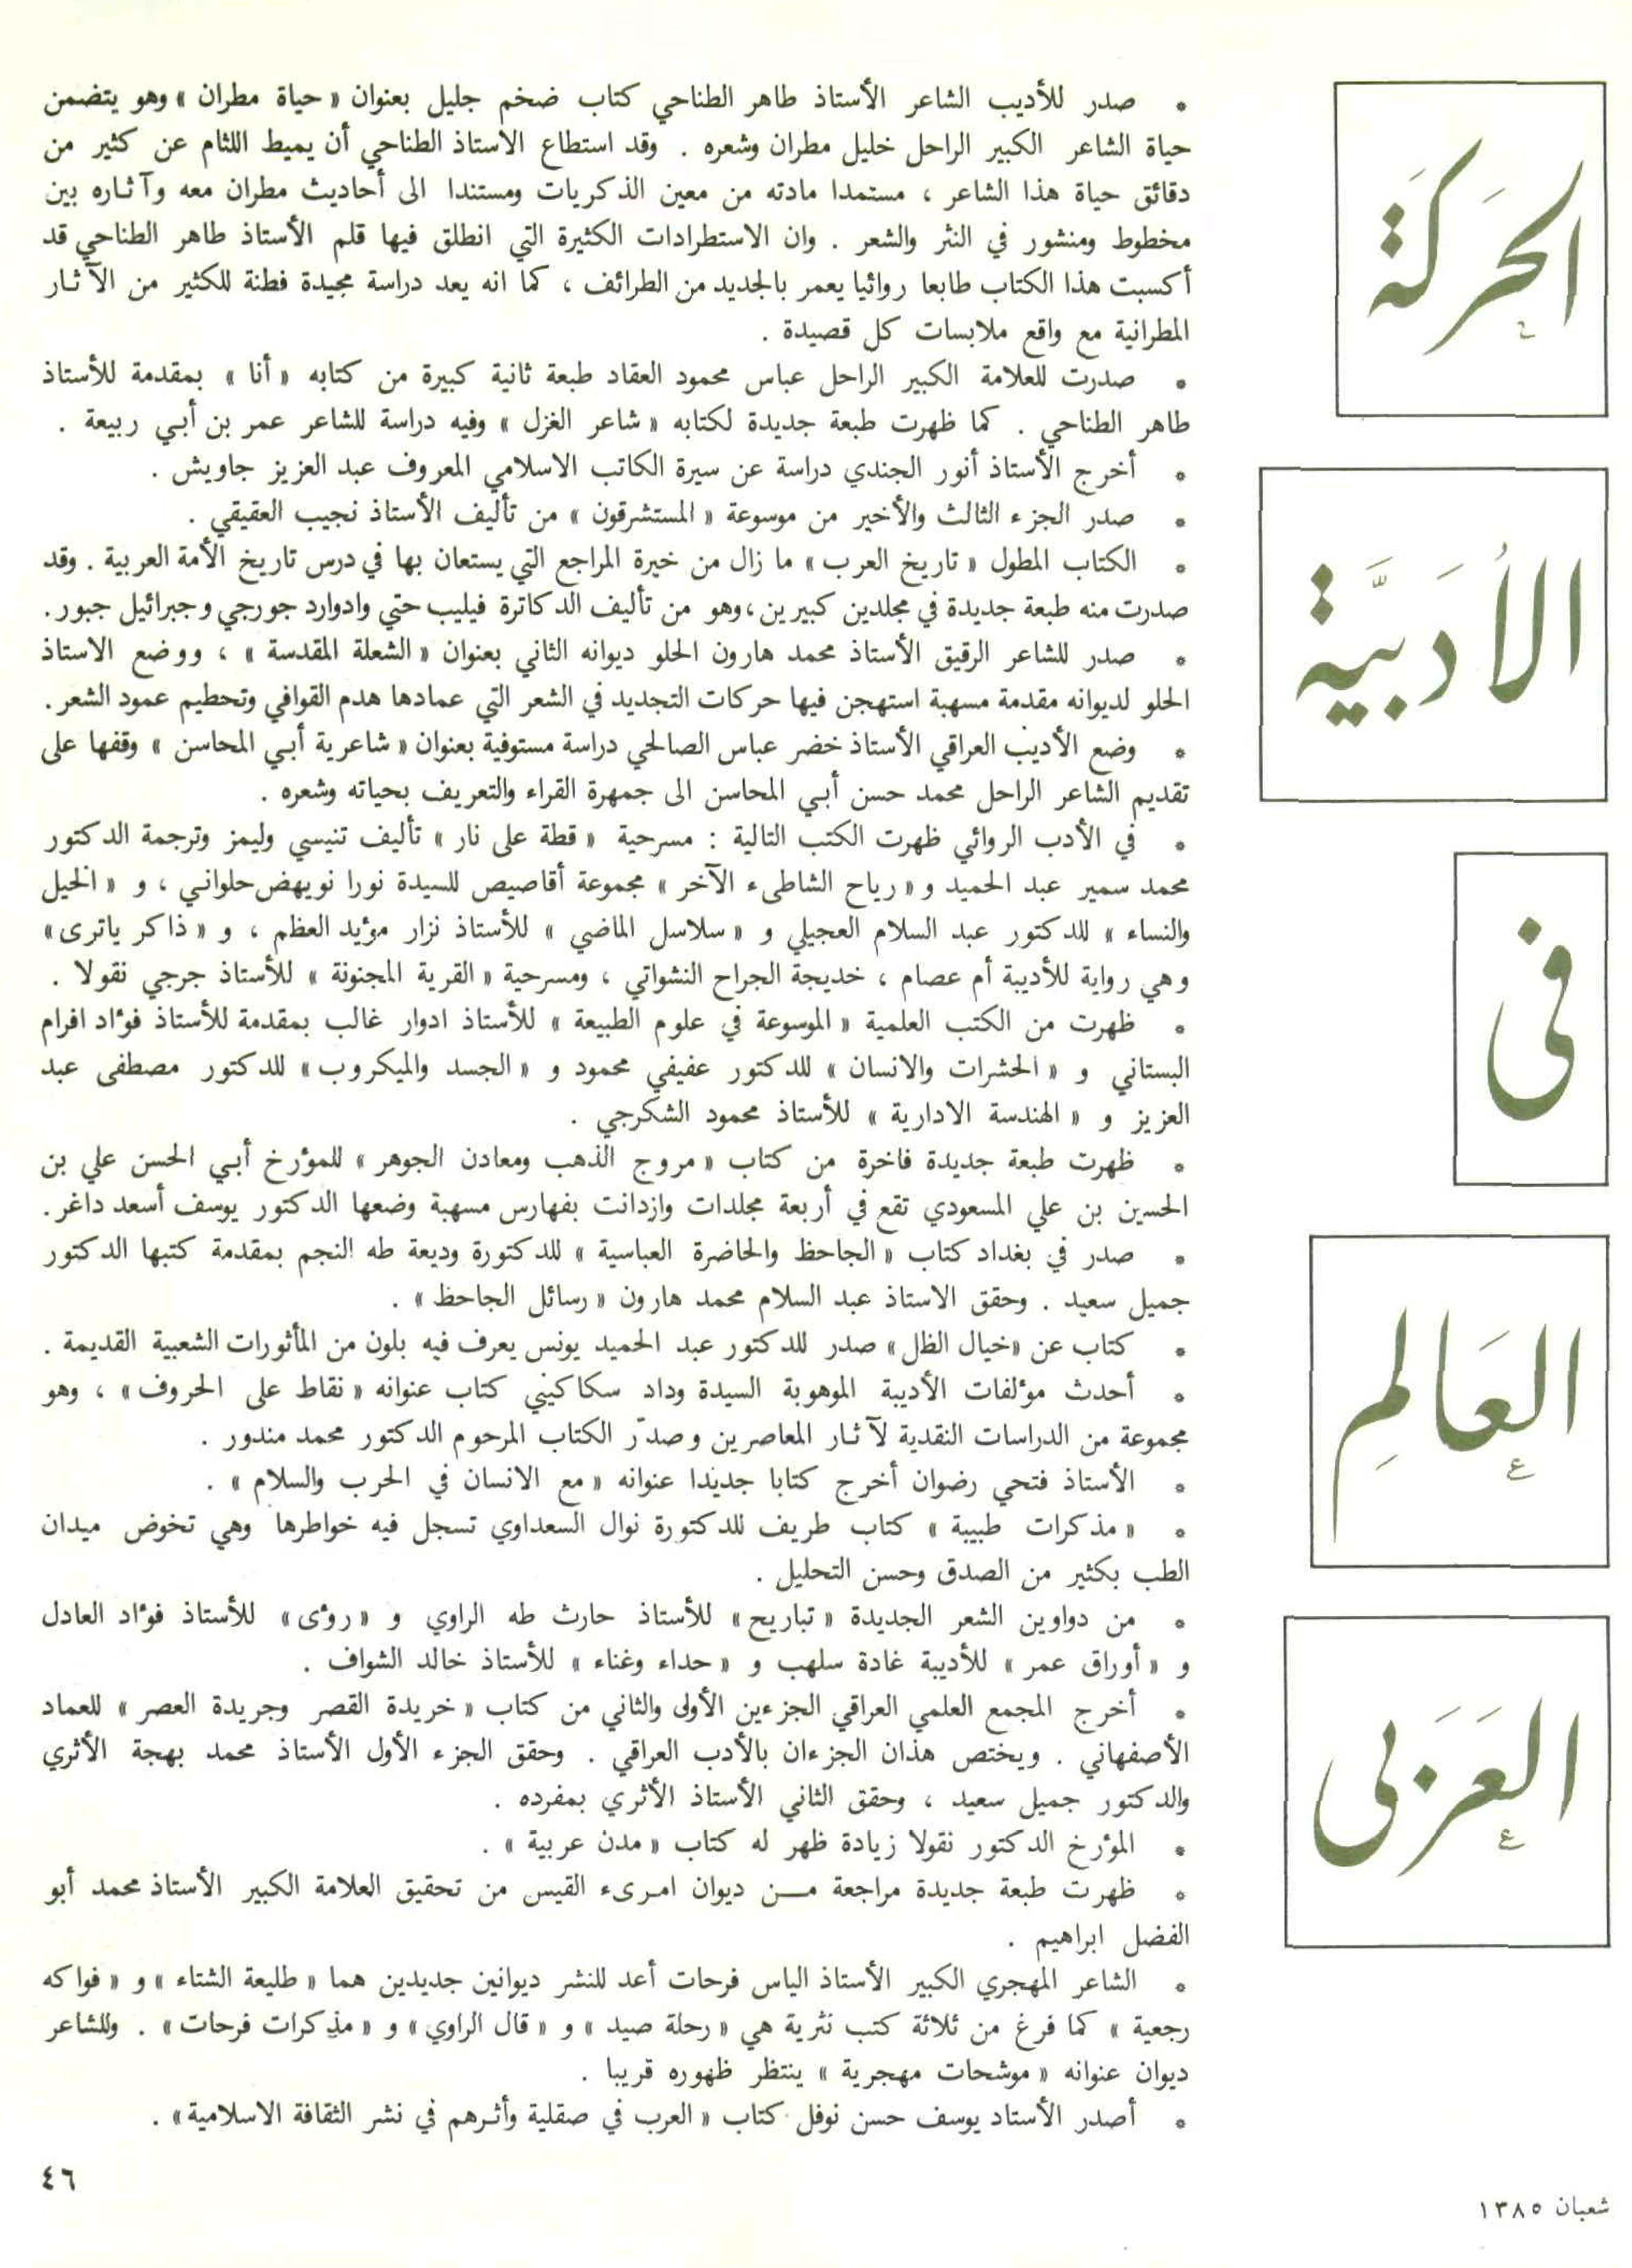 الحركة
الأدبية
في
العالم
العربي
* صدر للأديب الشاعر الأستاذ طاهر الطناحي كتاب ضخم جليل بعنوان « حياة مطران » وهو يتضمن
حياة الشاعر الكبير الراحل خليل مطران وشعره . وقد استطاع الاستاذ الطناحي أن يميط اللثام عن كثير من
دقائق حياة هذا الشاعر ، مستمدا مادته من معين الذكريات ومستندا الى أحاديث مطران معه وآثاره بين
مخطوط ومنشور في النثر والشعر . وان الاستطرادات الكثيرة التي انطلق فيها قلم الأستاذ طاهر الطناحي قد
أكسبت هذا الكتاب طابعا روائيا يعمر بالجديد من الطرائف ، كما انه يعد دراسة مجيدة فطنة للكثير من الآثار
المطرانية مع واقع ملابسات كل قصيدة .
* صدرت للعلامة الكبير الراحل عباس محمود العقاد طبعة ثانية كبيرة من كتابه « أنا » بمقدمة للأستاذ
طاهر الطناحي . كما ظهرت طبعة جديدة لكتابه « شاعر الغزل » وفيه دراسة للشاعر عمر بن أبي ربيعة .
* أخرج الأستاذ أنور الجندي دراسة عن سيرة الكاتب الاسلامي المعروف عبد العزيز جاويش .
* صدر الجزء الثالث والأخير من موسوعة « المستشرقون » من تأليف الأستاذ نجيب العقيقي .
* الكتاب المطول « تاريخ العرب » ما زال من خيرة المراجع التي يستعان بها في درس تاريخ الأمة العربية . وقد
صدرت منه طبعة جديدة في مجلدين كبيرين ، وهو من تأليف الدكاترة فيليب حتي وادوارد جورجي وجبرائيل جبور .
* صدر للشاعر الرقيق الأستاذ محمد هارون الحلو ديوانه الثاني بعنوان « الشعلة المقدسة » ، ووضع الاستاذ
الحلو لديوانه مقدمة مسهبة استهجن فيها حركات التجديد في الشعر التي عمادها هدم القوافي وتحطيم عمود الشعر .
* وضع الأديب العراقي الأستاذ خضر عباس الصالحي دراسة مستوفية بعنوان « شاعرية أبي المحاسن » وقفها على
تقديم الشاعر الراحل محمد حسن أبي المحاسن الى جمهرة القراء والتعريف بحياته وشعره .
* في الأدب الروائي ظهرت الكتب التالية : مسرحية « قطة على نار » تأليف تنيسي وليمز وترجمة الدكتور
محمد سمير عبد الحميد و « رياح الشاطىء الآخر » مجموعة أقاصيص للسيدة نورا نويهض حلواني ، و « الخيل
والنساء » للدكتور عبد السلام العجيلي و « سلاسل الماضي » للأستاذ نزار مؤيد العظم ، و « ذاكر ياترى »
وهي رواية للأديبة أم عصام ، خديجة الجراح النشواتي ، ومسرحية « القرية المجنونة » للأستاذ جرجي نقولا .
* ظهرت من الكتب العلمية « الموسوعة في علوم الطبيعة » للأستاذ ادوار غالب بمقدمة للأستاذ فؤاد افرام
البستاني و « الحشرات والانسان » للدكتور عفيفي محمود و « الجسد والميكروب » للدكتور مصطفى عبد
العزيز و « الهندسة الادارية » للأستاذ محمود الشكرجي .
* ظهرت طبعة جديدة فاخرة من كتاب « مروج الذهب ومعادن الجوهر » للمؤرخ أبي الحسن علي بن
الحسين بن علي المسعودي تقع في أربعة مجلدات وازدانت بفهارس مسهبة وضعها الدكتور يوسف أسعد داغر .
* صدر في بغداد كتاب « الجاحظ والحاضرة العباسية » للدكتورة وديعة طه النجم بمقدمة كتبها الدكتور
جميل سعيد . وحقق الاستاذ عبد السلام محمد هارون « رسائل الجاحظ » .
* كتاب عن « خيال الظل » صدر للدكتور عبد الحميد يونس يعرف فيه بلون من المأثورات الشعبية القديمة .
* أحدث مؤلفات الأديبة الموهوبة السيدة وداد سكاكيني كتاب عنوانه « نقاط على الحروف » ، وهو
مجموعة من الدراسات النقدية لآثار المعاصرين وصدّر الكتاب المرحوم الدكتور محمد مندور .
* الأستاذ فتحي رضوان أخرج كتابا جديدا عنوانه « مع الانسان في الحرب والسلام » .
* « مذكرات طبيبة » كتاب طريف للدكتورة نوال السعداوي تسجل فيه خواطرها وهي تخوض ميدان
الطب بكثير من الصدق وحسن التحليل .
* من دواوين الشعر الجديدة « تباريح » للأستاذ حارث طه الراوي و « رؤى » للأستاذ فؤاد العادل
و « أوراق عمر » للأديبة غادة سلهب و « حداء وغناء » للأستاذ خالد الشواف .
* أخرج المجمع العلمي العراقي الجزءين الأولى والثاني من كتاب « خريدة القصر وجريدة العصر » للعماد
الأصفهاني . ويختص هذان الجزءان بالأدب العراقي . وحقق الجزء الأول الأستاذ محمد بهجة الأثري
والدكتور جميل سعيد ، وحقق الثاني الأستاذ الأثري بمفرده .
* المؤرخ الدكتور نقولا زيادة ظهر له كتاب « مدن عربية » .
* ظهرت طبعة جديدة مراجعة من ديوان امرىء القيس من تحقيق العلامة الكبير الأستاذ محمد أبو
الفضل ابراهيم .
* الشاعر المهجري الكبير الأستاذ الياس فرحات أعد للنشر ديوانين جديدين هما « طليعة الشتاء » و « فواكه
رجعية » كما فرغ من ثلاثة كتب نثرية هي « رحلة صيد » و « قال الراوي » و « مذكرات فرحات » . وللشاعر
ديوان عنوانه « موشحات مهجرية » ينتظر ظهوره قريبا .
* أصدر الأستاد يوسف حسن نوفل كتاب « العرب في صقلية وأثرهم في نشر الثقافة الاسلامية » .
٤٦
شعبان ١٣٨٥